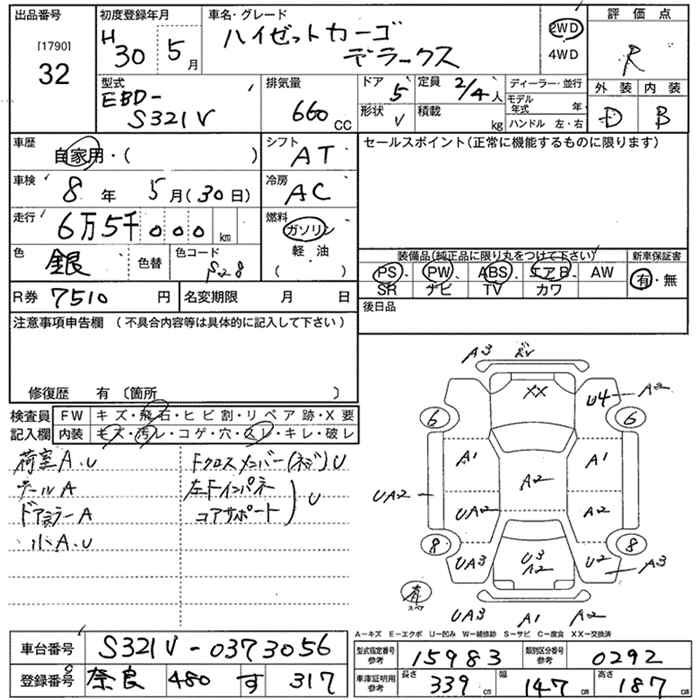 出品番号
[1790]
32
初度登録年月
H 30 5 月
車名・グレード
ハイゼットカーゴ
デラックス
2WD
4WD
評価点
R
外装 内装
D B
型式
EBD-
S321V
排気量
660 CC
ドア 5
定員 2/4 人
形状 V
積載 kg
ディーラー・並行
モデル年式 年
ハンドル 左・右
車歴
自家用・( )
シフト
AT
車検
8 年 5 月(30日)
冷房
AC
走行
6万5千000 km
燃料
ガソリン
軽油
( )
色
銀
色替
色コード
S28
R券 7510 円
名変期限 月 日
セールスポイント(正常に機能するものに限ります)
装備品(純正品に限り丸をつけて下さい)
新車保証書
PS PW ABS エアB AW
SR ナビ TV カワ
有・無
後日品
注意事項申告欄 (不具合内容等は具体的に記入して下さい)
修復歴 有 〔箇所 〕
検査員記入欄
FW キズ・飛石・ヒビ割・リペア跡・X要
内装 キズ・汚レ・コゲ・穴・スレ・キレ・破レ
荷室A.U
テールA
ドアミラーA
小A.U
Fクロスメンバー(ネジ)U
左Fインパネ
コアサポート U
A3
XX
U4
A2
6
6
A1
A1
A2
UA2
UA2
A2
8
8
UA3
U3
A2
U2
A3
スペア
UA3
A1
A2
A－キズ E－エクボ U－凹み W－補修跡 S－サビ C－腐食 XX－交換済
車台番号
S321V-0373056
登録番号
奈良 480 す 317
型式指定番号
参考
15983
類別区分番号
参考
0292
車庫証明用
参考
長さ 339 cm
幅 147 cm
高さ 187 cm